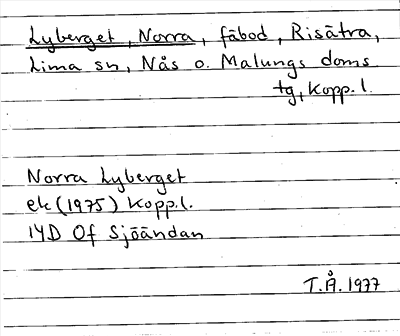 Lyberget, Norra, fäbod, Risätra,
Lima sn, Nås o. Malungs doms
tg, Kopp.l.
Norra Lyberget
ek (1975) Kopp.l.
14D Of Sjöändan
T.Å. 1977